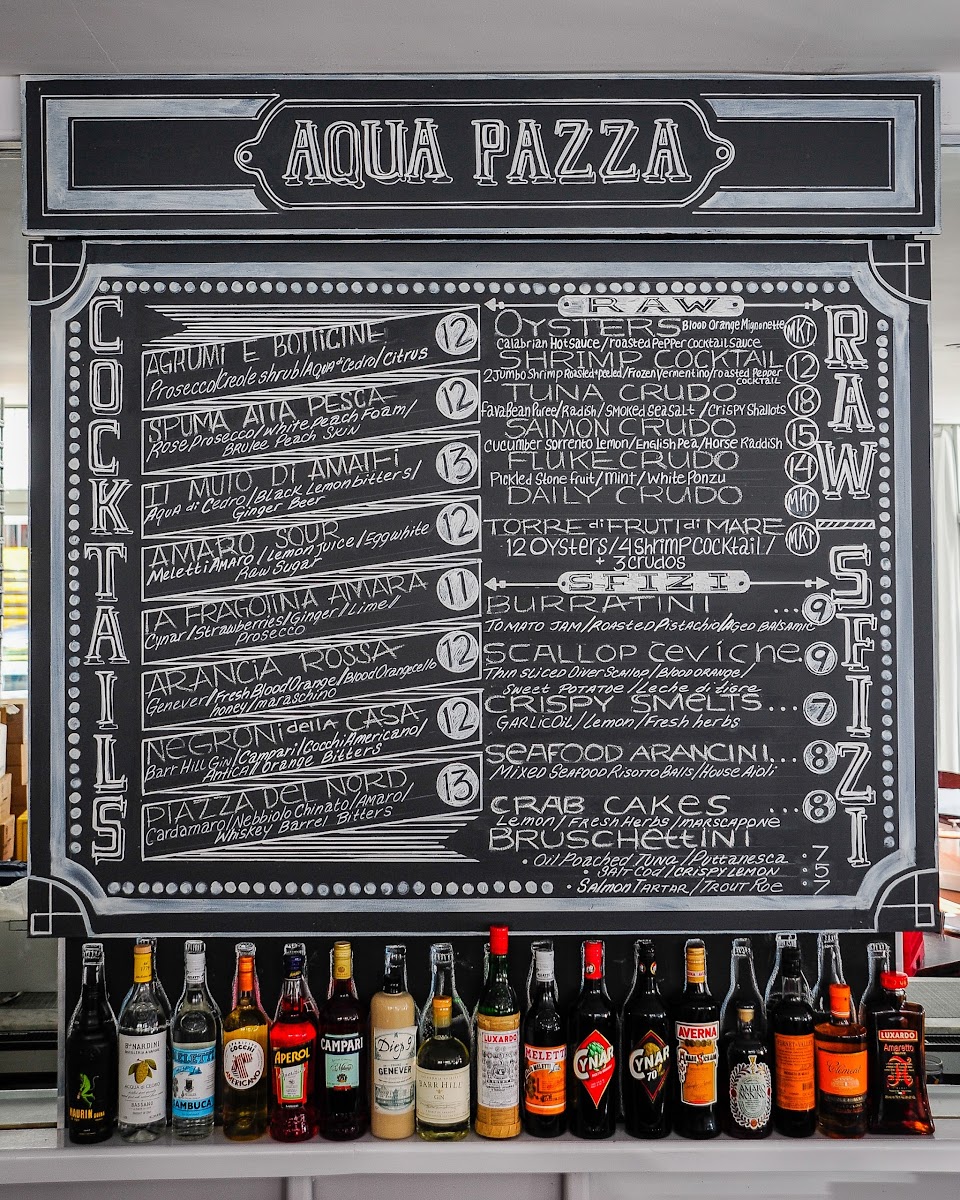 AQUA PAZZA
COCKTAILS
AGRUMI E BOLLICINE 12
Prosecco/Creole shrub/AQUA di Cedro/citrus
SPUMA ALLA PESCA 12
Rose Prosecco/White Peach Foam/
BRULEE Peach SKIN
IL MUTO DI AMALFI 13
AQUA di Cedro/Black Lemon bitters/
Ginger Beer
AMARO SOUR 12
Meletti AMARO/Lemon Juice/Egg white
Raw Sugar
LA FRAGOLINA AMARA 11
Cynar/Strawberries/Ginger/Lime/
Prosecco
ARANCIA ROSSA 12
Genever/Fresh Blood Orange/Blood Orangecello
honey/maraschino
NEGRONI della CASA 12
Barr Hill Gin/Campari/Cocchi Americano/
Antica/Orange Bitters
PIAZZA DEL NORD 13
Cardamaro/Nebbiolo Chinato/Amaro/
Whiskey Barrel Bitters
RAW
OYSTERS Blood Orange Mignonette MKT
Calabrian Hot Sauce/roasted Pepper Cocktail Sauce
SHRIMP COCKTAIL 12
2 Jumbo Shrimp Roasted+peeled/Frozen Vermentino/roasted Pepper
COCKTAIL
TUNA CRUDO 18
Fava Bean Puree/Radish/Smoked Sea Salt/Crispy Shallots
SALMON CRUDO 15
Cucumber Sorrento Lemon/English Pea/Horse Raddish
FLUKE CRUDO 14
Pickled Stone fruit/Mint/White Ponzu
DAILY CRUDO MKT
TORRE di FRUTI di MARE MKT
12 OYSTERS/4 shrimp cocktail/
+ 3 crudos
SFIZI
BURRATINI ... 9
TOMATO JAM/ROASTED Pistachio/Aged BALSAMIC
SCALLOP Ceviche. 9
Thin Sliced Diver Scallop/Blood orange/
Sweet POTATOE/Leche di tigre
CRISPY SMELTS... 7
GARLIC OIL/Lemon/Fresh herbs
SEAFOOD ARANCINI... 8
MIXED SEAFOOD RISOTTO BALLS/HOUSE AIOLI
CRAB CAKES ... 8
Lemon/FRESH HERBS/MARSCAPONE
BRUSCHETTINI
• OIL POACHED TUNA/Puttanesca : 7
• SALT COD/CRISPY LEMON : 5
• SALMON TARTAR/TROUT ROE : 7
RAW
SFIZI
BARR HILL
GIN
Diep 9
GENEVER
COCCHI
AMERICANO
APEROL
CAMPARI
B.NARDINI
ACQUA DI CEDRO
BASSANO
MELETTI
SAMBUCA
LUXARDO
MELETTI
CYNAR
CYNAR
70
AVERNA
AMARO
NONINO
LUXARDO
Amaretto